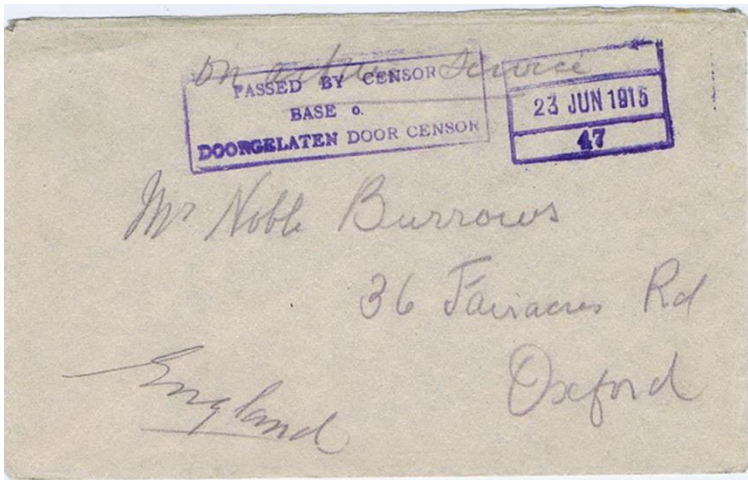 On active service
PASSED BY CENSOR
BASE o.
DOORGELATEN DOOR CENSOR
23 JUN 1915
47
Mr Noble Burrows
36 Fairacres Rd
Oxford
England